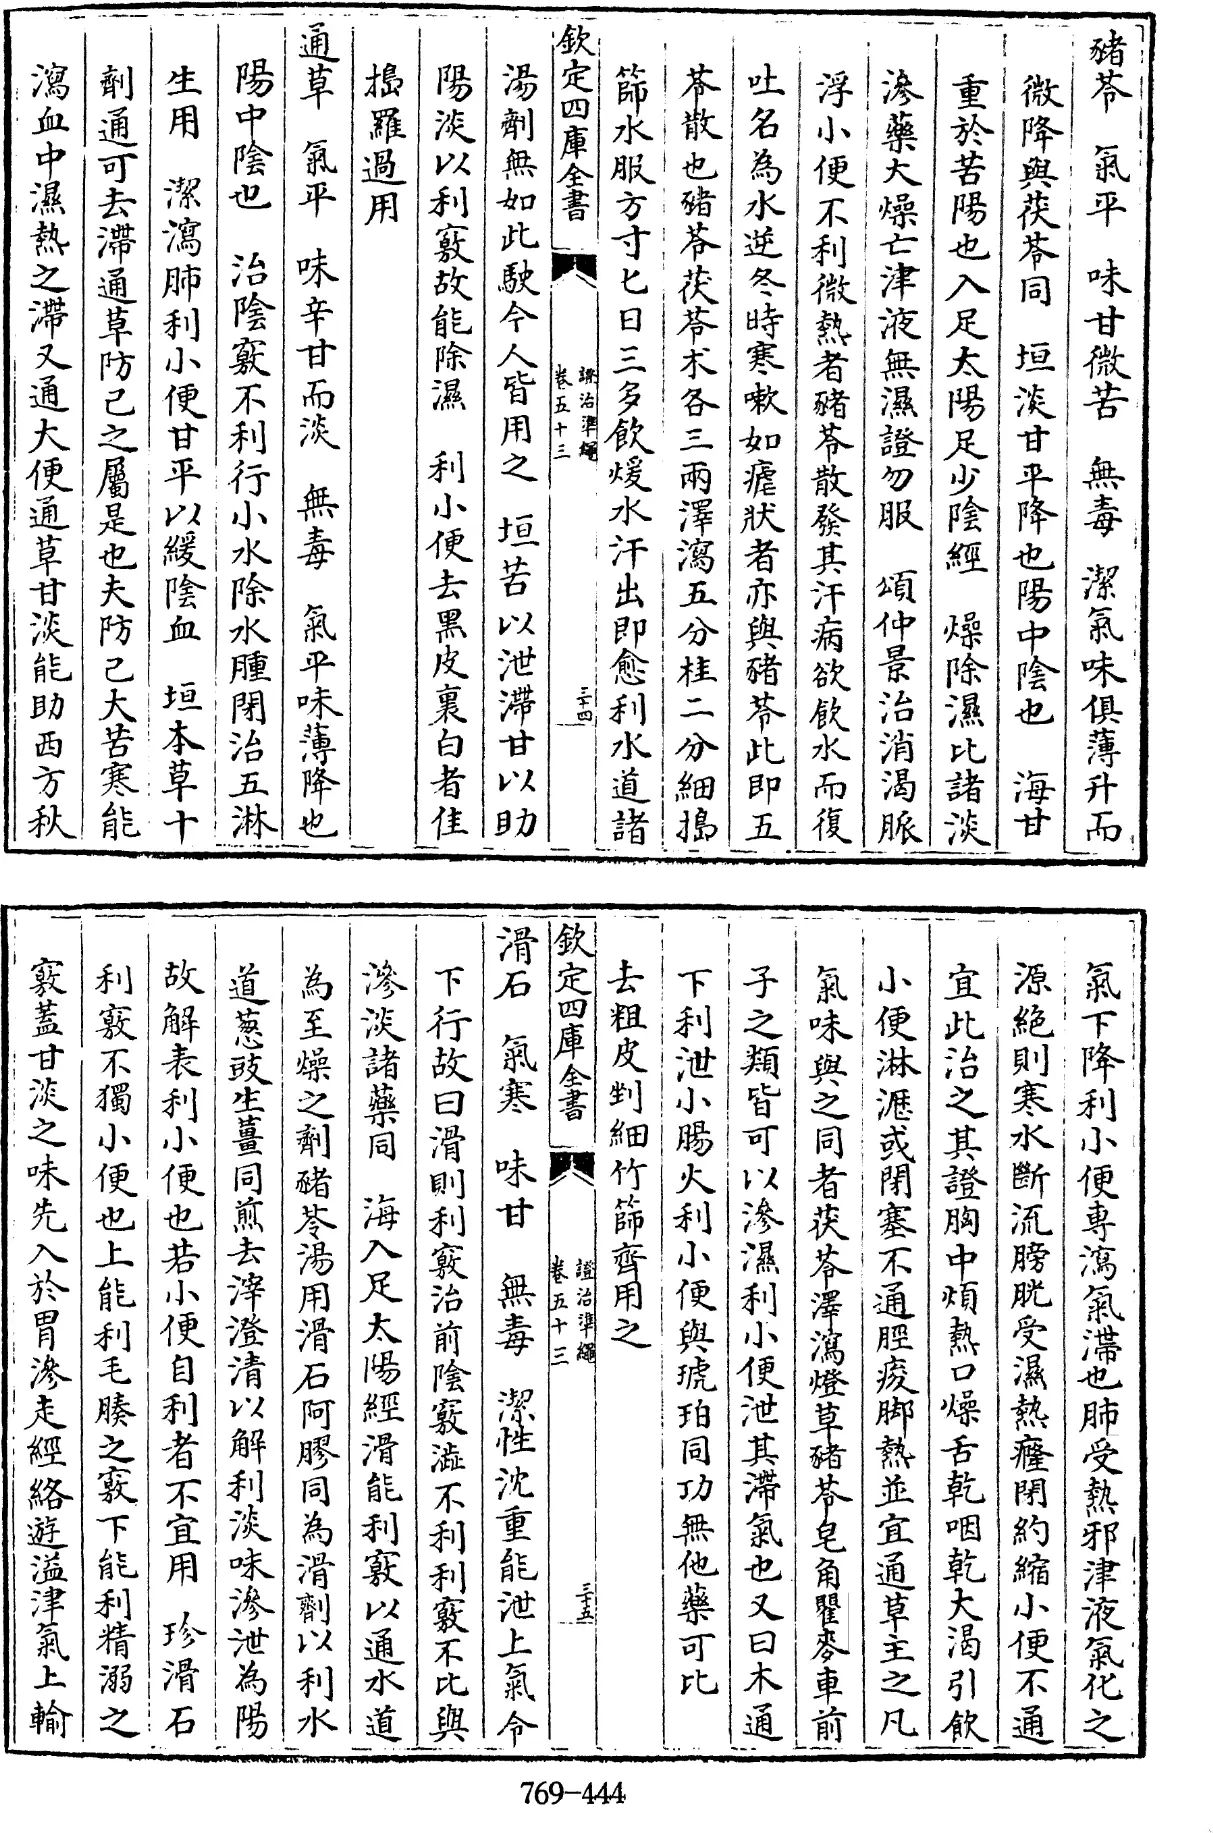 豬苓　氣平　味甘微苦　無毒　潔氣味俱薄升而
微降與茯苓同　垣淡甘平降也陽中陰也　海甘
重於苦陽也入足太陽足少陰經　燥除濕比諸淡
滲藥大燥亡津液無濕證勿服　頌仲景治消渴脈
浮小便不利微熱者豬苓散發其汗病欲飲水而復
吐名為水逆冬時寒嗽如瘧狀者亦與豬苓此即五
苓散也豬苓茯苓朮各三兩澤瀉五分桂二分細搗
篩水服方寸匕日三多飲煖水汗出即愈利水道諸
欽定四庫全書　證治準繩　卷五十三　三十四
湯劑無如此駛今人皆用之　垣苦以泄滯甘以助
陽淡以利竅故能除濕　利小便去黑皮裏白者佳
搗羅過用
通草　氣平　味辛甘而淡　無毒　氣平味薄降也
陽中陰也　治陰竅不利行小水除水腫閉治五淋
生用　潔瀉肺利小便甘平以緩陰血　垣本草十
劑通可去滯通草防己之屬是也夫防己大苦寒能
瀉血中濕熱之滯又通大便通草甘淡能助西方秋
氣下降利小便專瀉氣滯也肺受熱邪津液氣化之
源絕則寒水斷流膀胱受濕熱癃閉約縮小便不通
宜此治之其證胸中煩熱口燥舌乾咽乾大渴引飲
小便淋瀝或閉塞不通脛痠脚熱並宜通草主之凡
氣味與之同者茯苓澤瀉燈草豬苓皂角瞿麥車前
子之類皆可以滲濕利小便泄其滯氣也又曰木通
下利泄小腸火利小便與琥珀同功無他藥可比
去粗皮剉細竹篩齊用之
欽定四庫全書　證治準繩　卷五十三　三十五
滑石　氣寒　味甘　無毒　潔性沈重能泄上氣令
下行故曰滑則利竅治前陰竅澁不利利竅不比與
滲淡諸藥同　海入足太陽經滑能利竅以通水道
為至燥之劑豬苓湯用滑石阿膠同為滑劑以利水
道葱豉生薑同煎去滓澄清以解利淡味滲泄為陽
故解表利小便也若小便自利者不宜用　珍滑石
利竅不獨小便也上能利毛腠之竅下能利精溺之
竅蓋甘淡之味先入於胃滲走經絡遊溢津氣上輸
769-444